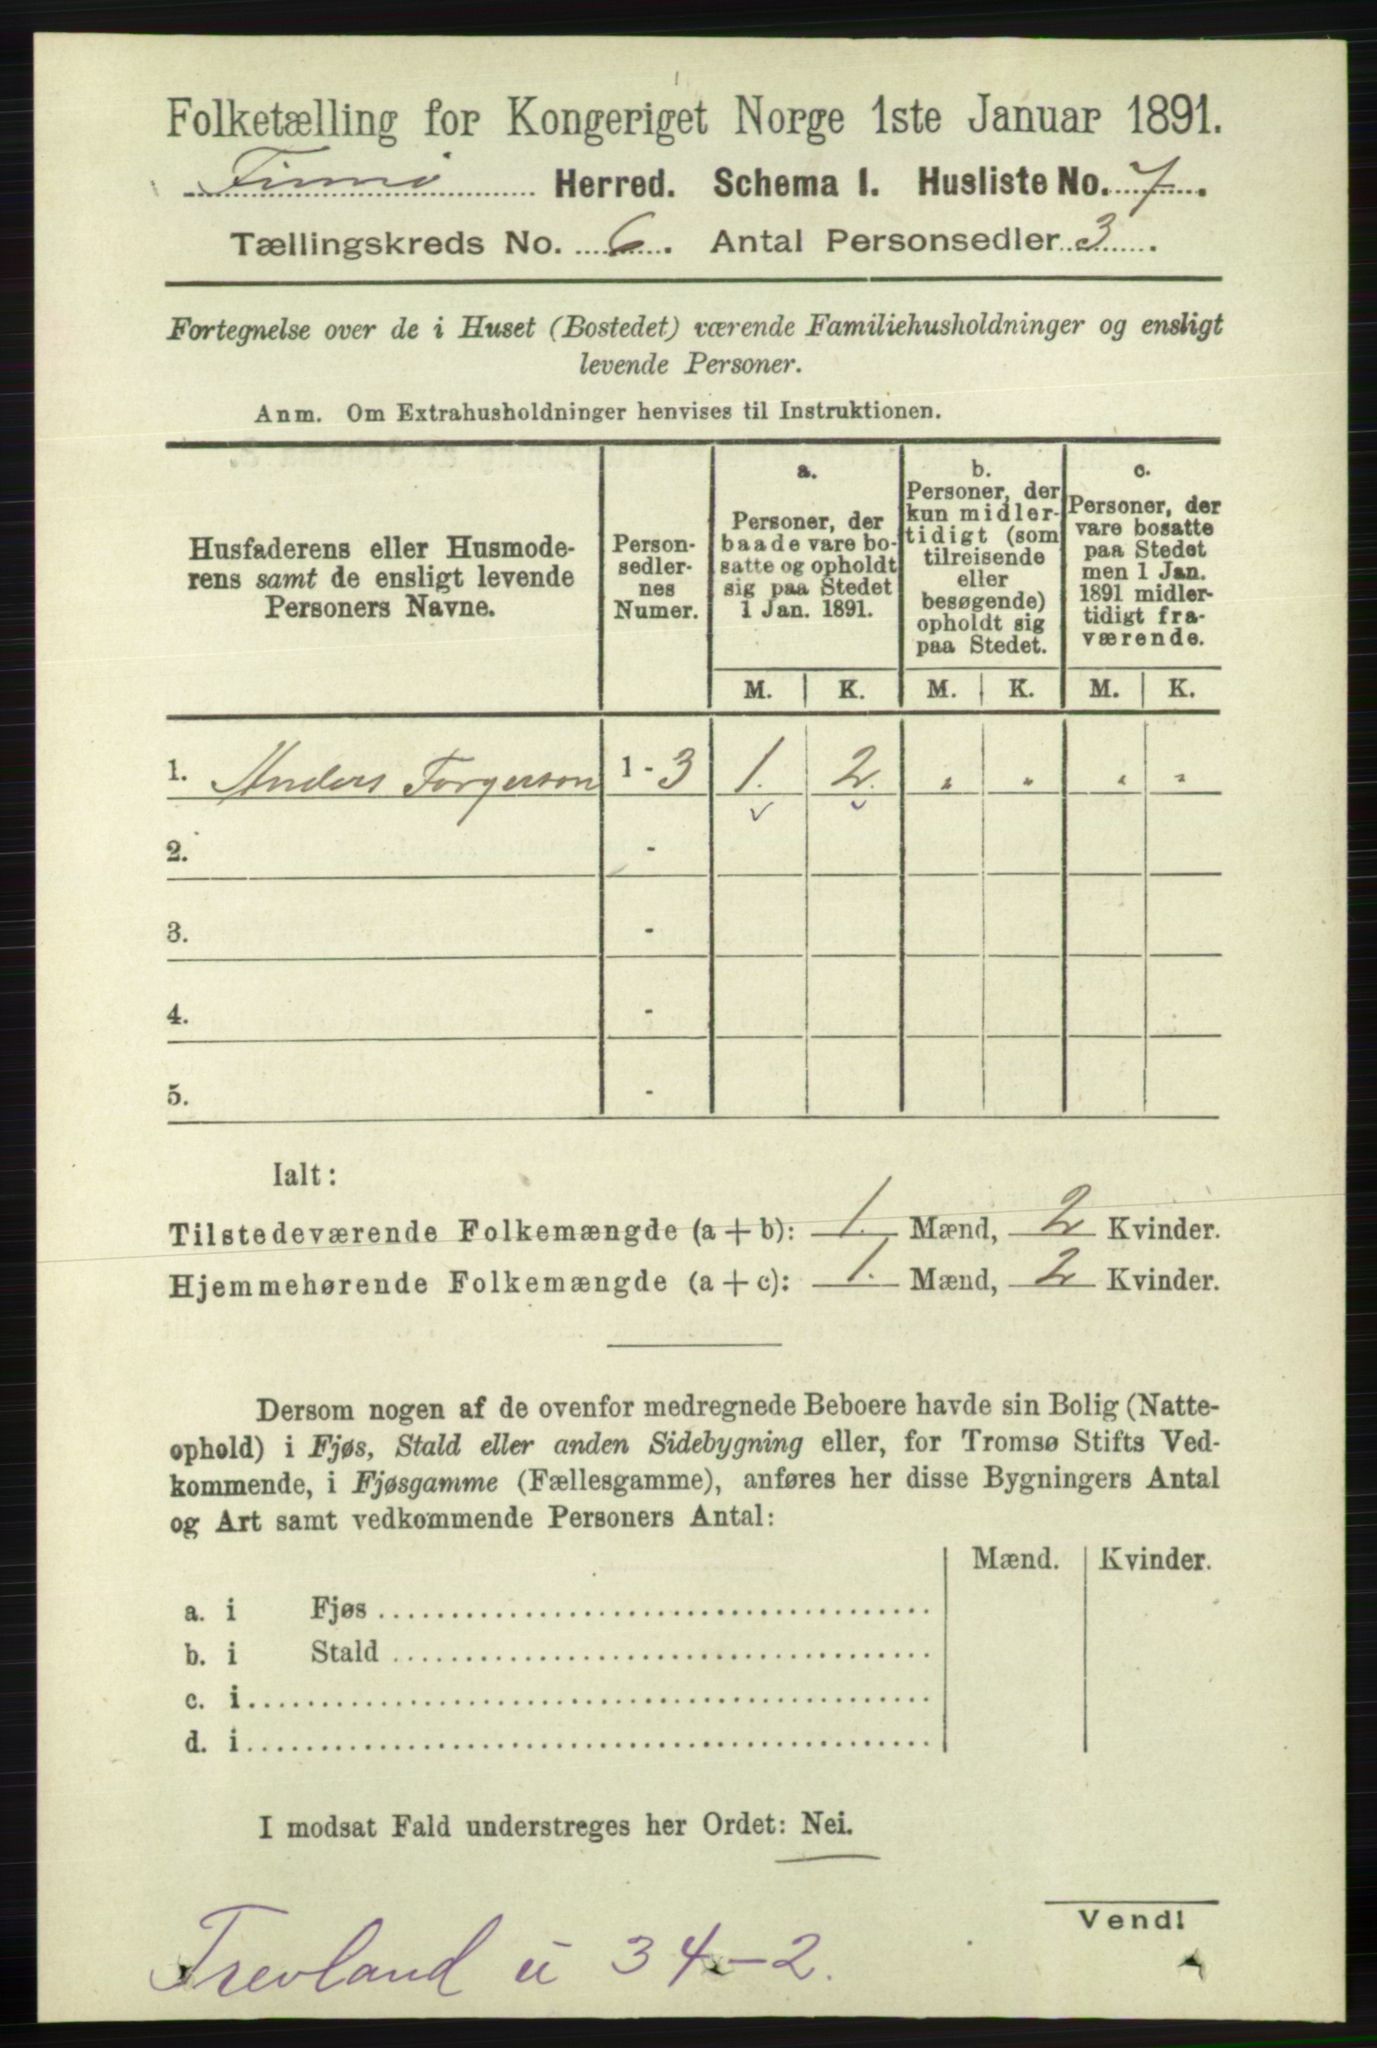 Folketælling for Kongeriget Norge 1ste Januar 1891.
Finnø Herred. Schema 1. Husliste No. 7.
Tællingskreds No. 6. Antal Personsedler 3.
Fortegnelse over de i Huset (Bostedet) værende Familiehusholdninger og ensligt
levende Personer.
Anm. Om Extrahusholdninger henvises til Instruktionen.
Husfaderens eller Husmode-
rens samt de ensligt levende
Personers Navne.
Person-
sedler-
nes
Numer.
a.
Personer, der
baade vare bo-
satte og opholdt
sig paa Stedet
1 Jan. 1891.
b.
Personer, der
kun midler-
tidigt (som
tilreisende
eller
besøgende)
opholdt sig
paa Stedet.
c.
Personer, der
vare bosatte
paa Stedet
men 1 Jan.
1891 midler-
tidigt fra-
værende.
M. K. M. K. M. K.
1. Anders Torgerson 1-3 1. 2. " " " "
2. -
3. -
4. -
5. -
Ialt:
Tilstedeværende Folkemængde (a+b): 1. Mænd, 2 Kvinder.
Hjemmehørende Folkemængde (a+c): 1. Mænd, 2 Kvinder.
Dersom nogen af de ovenfor medregnede Beboere havde sin Bolig (Natte-
ophold) i Fjøs, Stald eller anden Sidebygning eller, for Tromsø Stifts Ved-
kommende, i Fjøsgamme (Fællesgamme), anføres her disse Bygningers Antal
og Art samt vedkommende Personers Antal:
Mænd. Kvinder.
a. i Fjøs
b. i Stald
c. i
d. i
I modsat Fald understreges her Ordet: Nei.
Vend!
34-2.